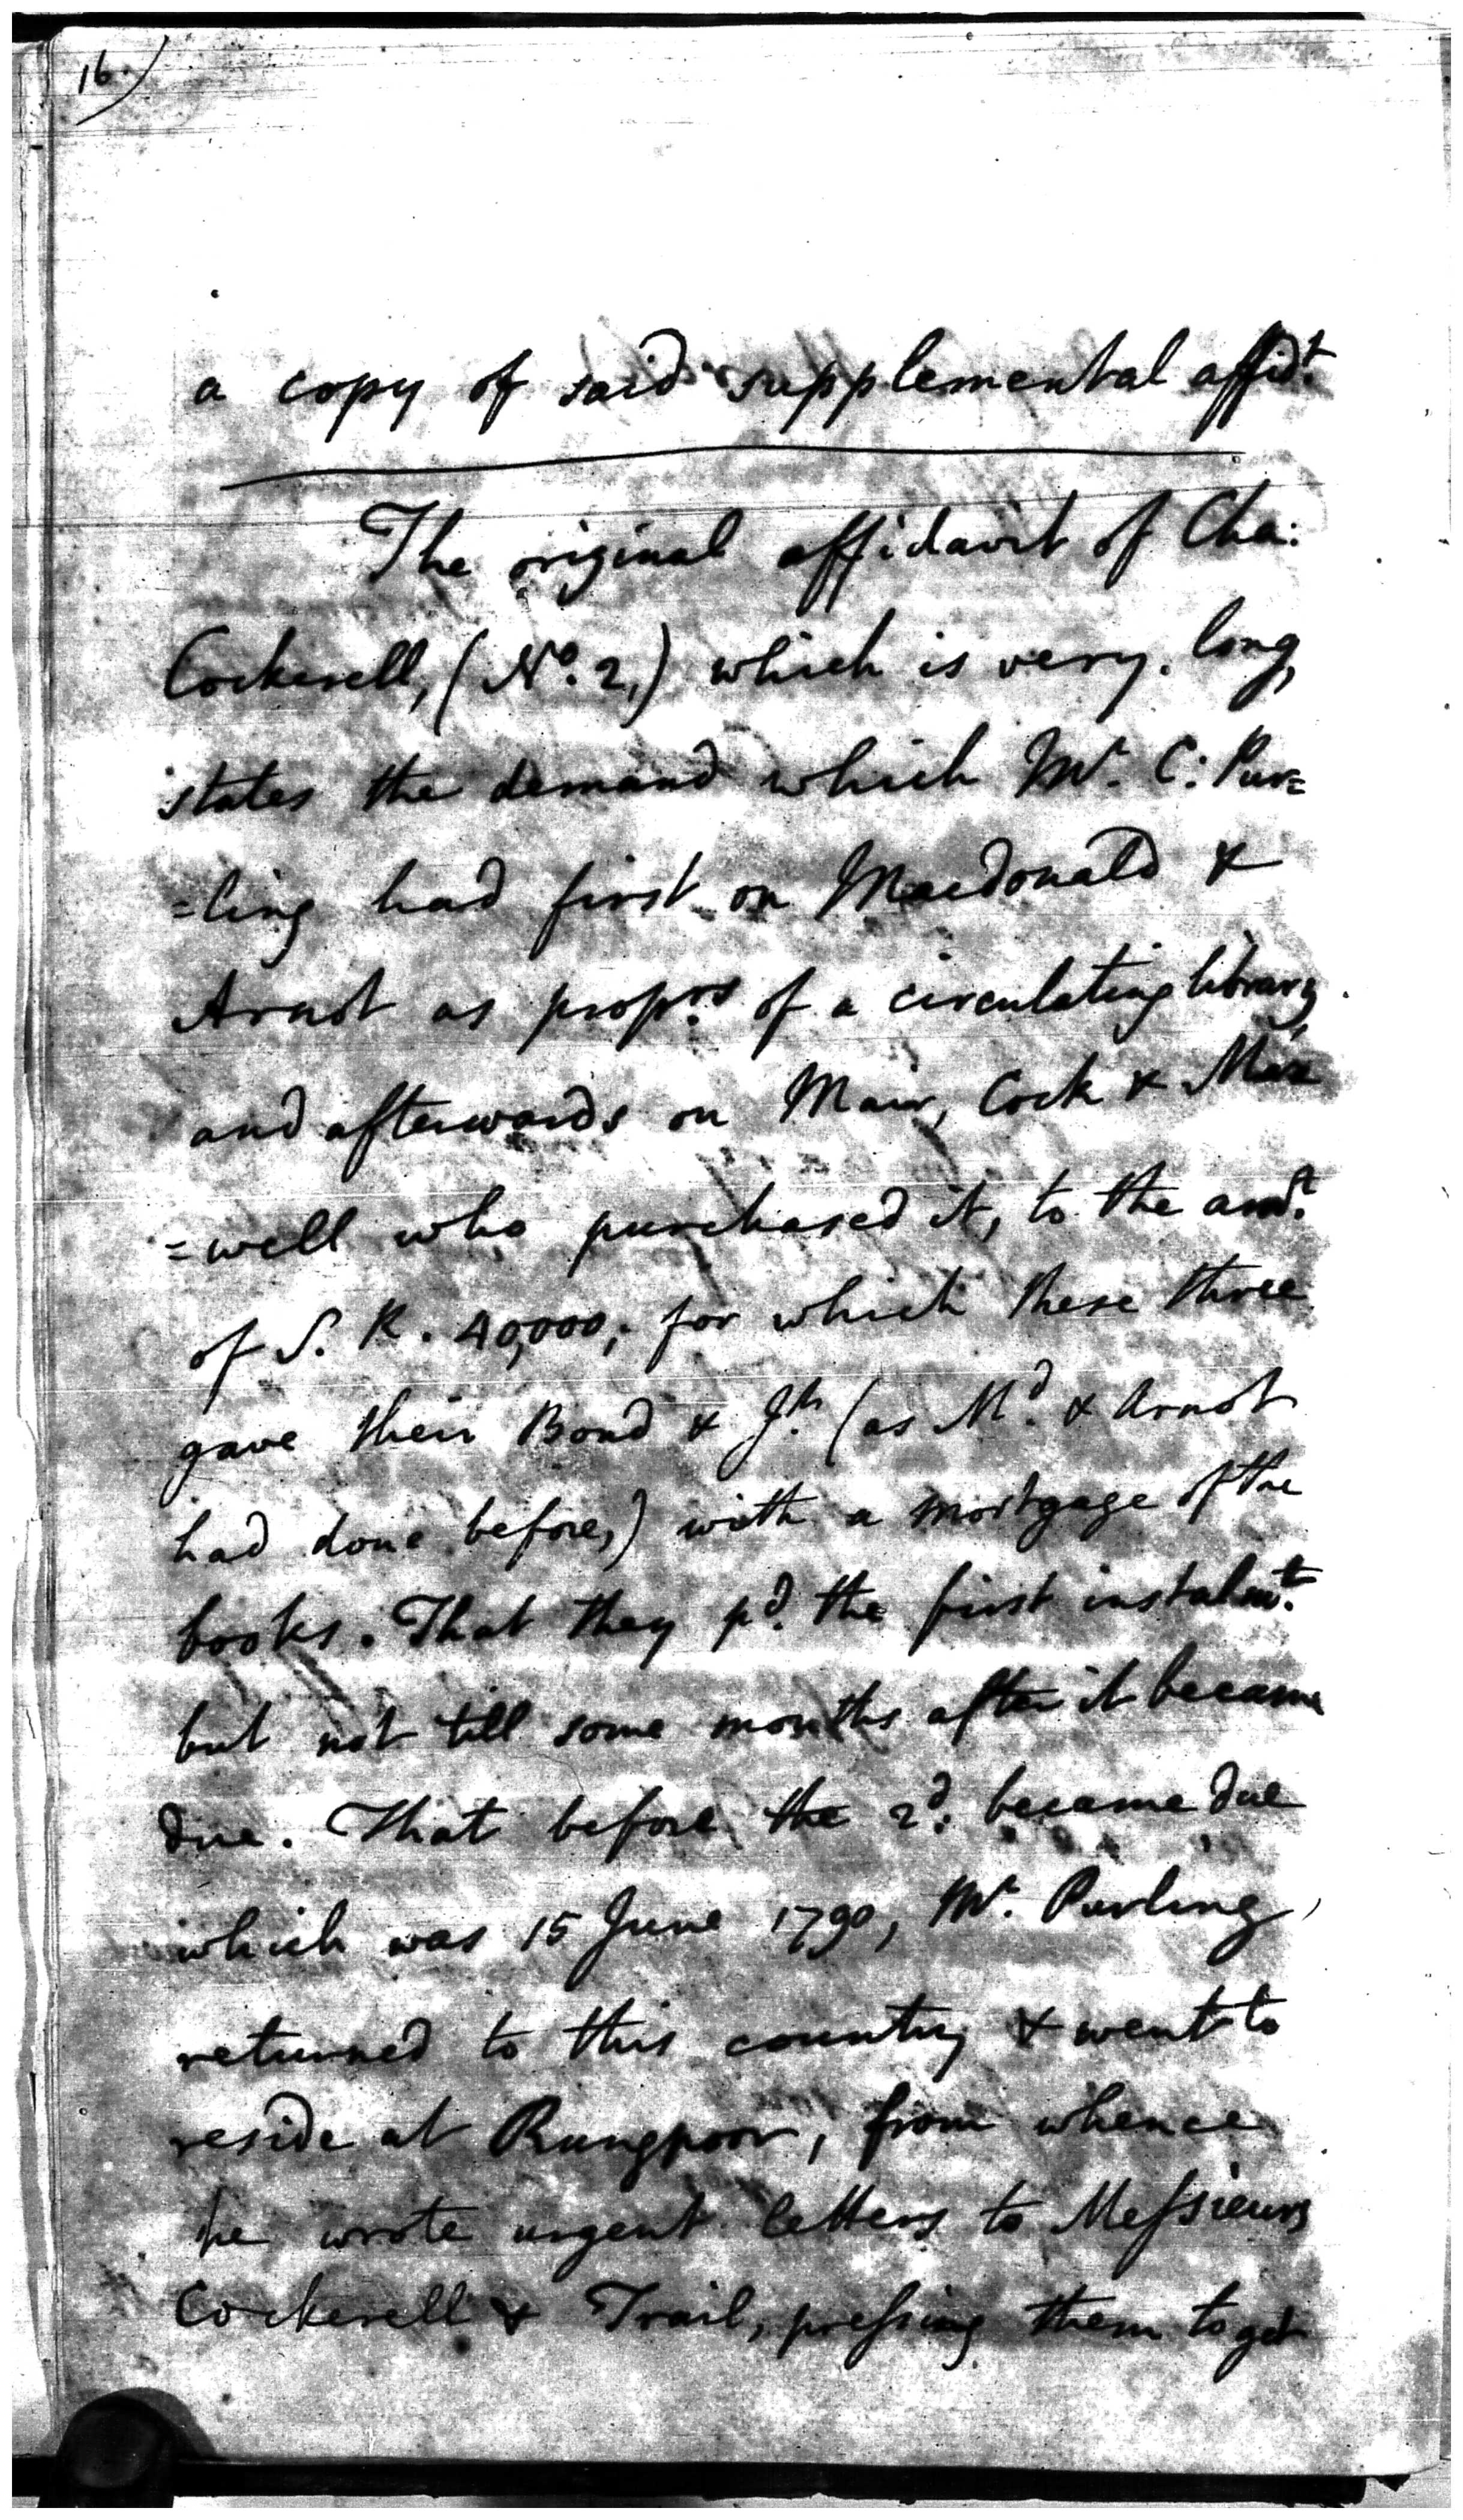 16)
a copy of said supplemental affidt.
The original affidavit of Cha:
Cockerell, (No. 2,) which is very long,
states the demand which Mr. C: Pur=
=ling had first on Macdonald &
Arnot as proprs. of a circulating library
and afterwards on Mair, Cock & Max
=well who purchased it, to the amt.
of S. R. 40,000; for which these three
gave their Bond & Jt. (as Md. & Arnot
had done before,) with a mortgage of the
books. That they pd. the first instalmt.
but not till some months after it became
due. That before the 2d. became due
which was 15 June 1790, Mr. Purling,
returned to this country & went to
reside at Rungpoor, from whence
he wrote urgent letters to Messieurs
Cockerell & Trail, pressing them to get